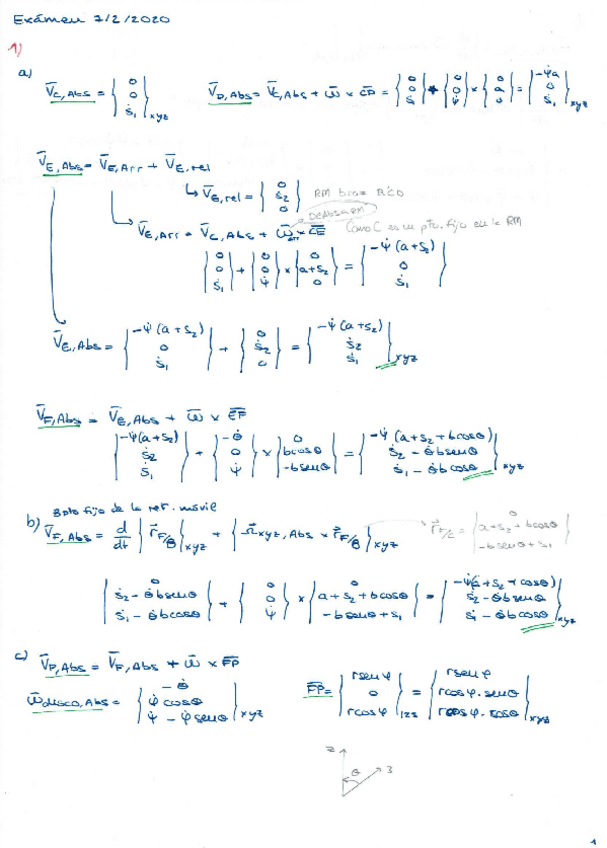 Exámen 7/2/2020
1)
a) V̄_C,Abs = {0, 0, ṡ₁}xyz   V̄_D,Abs = V̄_C,Abs + ω̄ × C̄D̄ = {0, 0, ṡ₁} + {0, 0, ψ̇} × {0, a, 0} = {-ψ̇a, 0, ṡ₁}xyz
V̄_E,Abs = V̄_E,Arr + V̄_E,rel
↳ V̄_E,rel = {0, ṡ₂, 0} RM BCD
↳ V̄_E,Arr = V̄_C,Abs + ω̄_arr × C̄Ē Como C es un pto. fijo en la RM
{0, 0, ṡ₁} + {0, 0, ψ̇} × {0, a+s₂, 0} = {-ψ̇(a+s₂), 0, ṡ₁}
V̄_E,Abs = {-ψ̇(a+s₂), 0, ṡ₁} + {0, ṡ₂, 0} = {-ψ̇(a+s₂), ṡ₂, ṡ₁}xyz
V̄_F,Abs = V̄_E,Abs + ω̄ × ĒF̄
{-ψ̇(a+s₂), ṡ₂, ṡ₁} + {-θ̇, 0, ψ̇} × {0, bcosθ, -bsenθ} = {-ψ̇(a+s₂+bcosθ), ṡ₂-θ̇bsenθ, ṡ₁-θ̇bcosθ}xyz
B pto fijo de la ref. movil
b) V̄_F,Abs = d/dt {r̄_F/B}xyz + {Ω̄xyz,Abs × r̄_F/B}xyz → r̄ = {0, a+s₂+bcosθ, -bsenθ+s₁}
{0, ṡ₂-θ̇bsenθ, ṡ₁-θ̇bcosθ} + {0, 0, ψ̇} × {0, a+s₂+bcosθ, -bsenθ+s₁} = {-ψ̇(a+s₂+cosθ), ṡ₂-θ̇bsenθ, ṡ₁-θ̇bcosθ}xyz
c) V̄_P,Abs = V̄_F,Abs + ω̄ × F̄P̄
ω̄_disco,Abs = {-θ̇, φ̇cosθ, ψ̇-φ̇senθ}xyz   F̄P̄ = {rsenφ, 0, rcosφ}123 = {rsenφ, rcosφ·senθ, rcosφ·cosθ}xyz
z θ 3
1